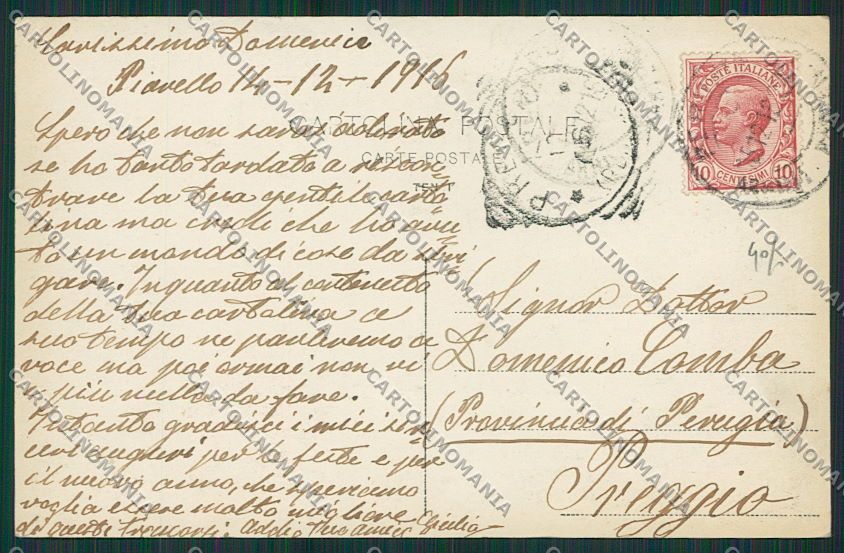 Carissimo Domenico
Piavello 14-12-1916
CARTOLINA POSTALE
CARTE POSTALE
Spero che non sarai adirato
se ho tanto tardato a riscon
trare la tua gentile carto
lina ma credi che ho avu
to un mondo di cose da
gare. In quanto al contenuto
della tua cartolina a
suo tempo ne parleremo a
voce ma poi ormai non vi
è più nulla da fare.
Intanto gradisci i miei sin
ceri auguri per le feste e per
il nuovo anno, che speriamo
voglia essere molto migliore
di questi trascorsi. Addio tuo amico
POSTE ITALIANE
10 CENTESIMI 10
40/
Signor Dottor
Domenico Comba
(Provincia di Perugia)
Preggio
CARTOLINOMANIA